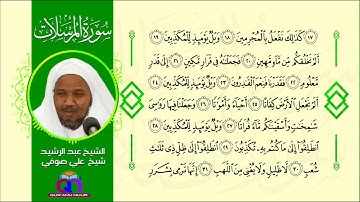 سورة المرسلات
الشيخ عبد الرشيد
شيخ علي صوفي
QURANI NUUR
١٧ كَذَٰلِكَ نَفْعَلُ بِالْمُجْرِمِينَ ١٨ وَيْلٌ يَوْمَئِذٍ لِلْمُكَذِّبِينَ ١٩
أَلَمْ نَخْلُقْكُمْ مِنْ مَاءٍ مَهِينٍ ٢٠ فَجَعَلْنَاهُ فِي قَرَارٍ مَكِينٍ ٢١ إِلَىٰ قَدَرٍ
مَعْلُومٍ ٢٢ فَقَدَرْنَا فَنِعْمَ الْقَادِرُونَ ٢٣ وَيْلٌ يَوْمَئِذٍ لِلْمُكَذِّبِينَ ٢٤
أَلَمْ نَجْعَلِ الْأَرْضَ كِفَاتًا ٢٥ أَحْيَاءً وَأَمْوَاتًا ٢٦ وَجَعَلْنَا فِيهَا رَوَاسِيَ
شَامِخَاتٍ وَأَسْقَيْنَاكُمْ مَاءً فُرَاتًا ٢٧ وَيْلٌ يَوْمَئِذٍ لِلْمُكَذِّبِينَ ٢٨
انْطَلِقُوا إِلَىٰ مَا كُنْتُمْ بِهِ تُكَذِّبُونَ ٢٩ انْطَلِقُوا إِلَىٰ ظِلٍّ ذِي ثَلَاثِ
شُعَبٍ ٣٠ لَا ظَلِيلٍ وَلَا يُغْنِي مِنَ اللَّهَبِ ٣١ إِنَّهَا تَرْمِي بِشَرَرٍ